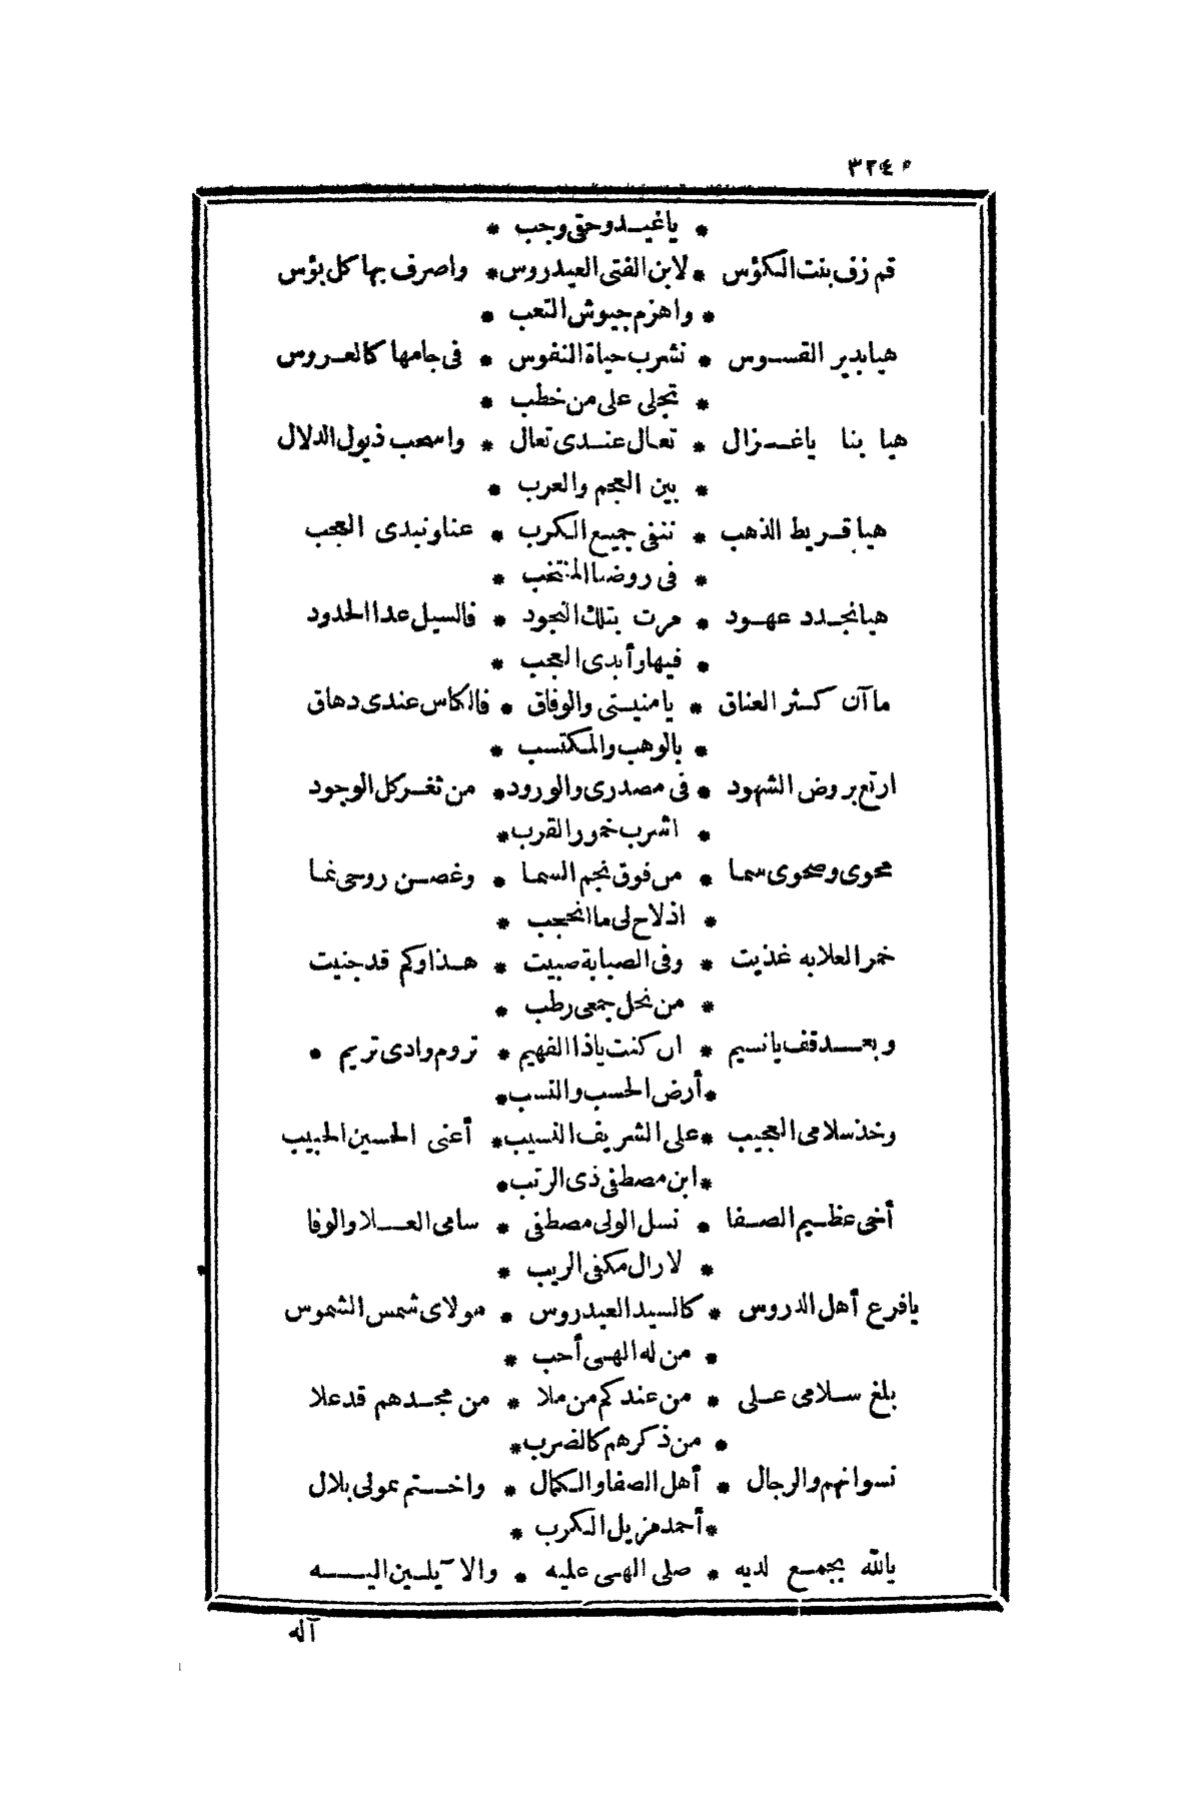 ٣٢٤
* ياغيد وحتى وجب *
قم زف بنت الكؤس * لابن الفتى العيدروس * واصرف بها كل بؤس
* واهزم جيوش التعب *
هيا بدير القسوس * نشرب حياة النفوس * فى جامها كالعروس
* تجلى على من خطب *
هيا بنا ياغزال * تعال عندى تعال * واسحب ذيول الدلال
* بين العجم والعرب *
هيا قريط الذهب * ننفى جميع الكرب * عنا ونبدى العجب
* فى روضنا المنتخب *
هيا نجدد عهود * مرت بتلك النجود * فالسيل عدا الحدود
* فيها وأبدى العجب *
ما آن كسر العناق * يا منيتى والوفاق * فالكاس عندى دهاق
* بالوهب والمكتسب *
ارتع بروض الشهود * فى مصدرى والورود * من ثغر كل الوجود
* اشرب خمور القرب *
محوى وصحوى سما * من فوق نجم السما * وغصن روحى نما
* اذلاح لى ما انحجب *
خمر العلا به غذيت * وفى الصبابة صبيت * هذا وكم قد جنيت
* من نخل جمعى رطب *
وبعد قف يانسيم * ان كنت ياذا الفهيم * تروم وادى تريم *
* أرض الحسب والنسب *
وخذ سلامى العجيب * على الشريف النسيب * أعنى الحسين الحبيب
* ابن مصطفى ذى الرتب *
أخى عظيم الصفا * نسل الولى مصطفى * سامى العلا والوفا
* لازال مكفى الريب *
يافرع أهل الدروس * كالسيد العيدروس * مولاى شمس الشموس
* من له الهى أحب *
بلغ سلامى على * من عندكم من ملا * من مجدهم قد علا
* من ذكرهم كالضرب *
نسوانهم والرجال * أهل الصفا والكمال * واختم بمولى بلال
* أحمد مزيل الكرب *
يالله بجمع لديه * صلى الهى عليه * والآيلين اليه
آله